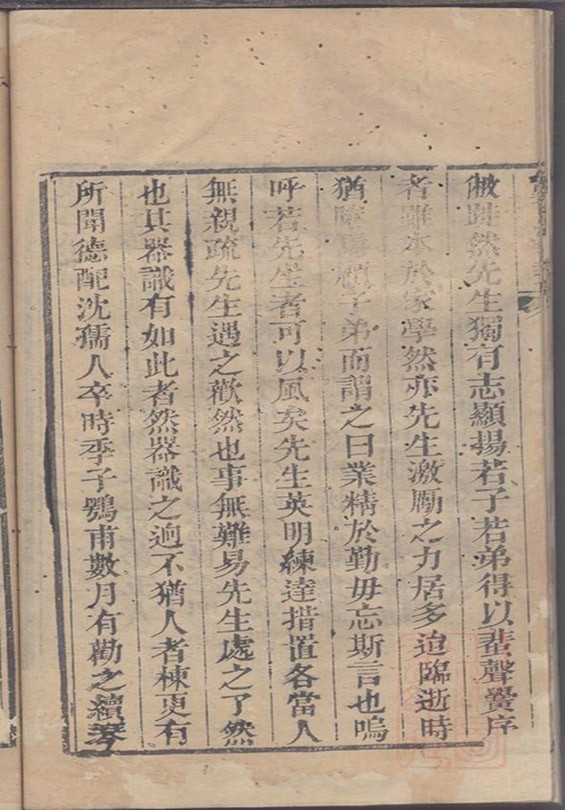 敝跬然先生獨有志顯揚若子若弟得以蜚聲黌序
者雖本於家學然亦先生激勵之力居多迨臨逝時
猶子弟而謂之曰業精於勤毋忘斯言也嗚
呼若先生者可以風矣先生英明練達措置各當人
無親疏先生遇之歡然也事無難易先生處之了然
也其器識有如此者然器識之逈不猶人者棟更有
所聞德配沈孺人卒時季子鶚甫數月有勸之續琴